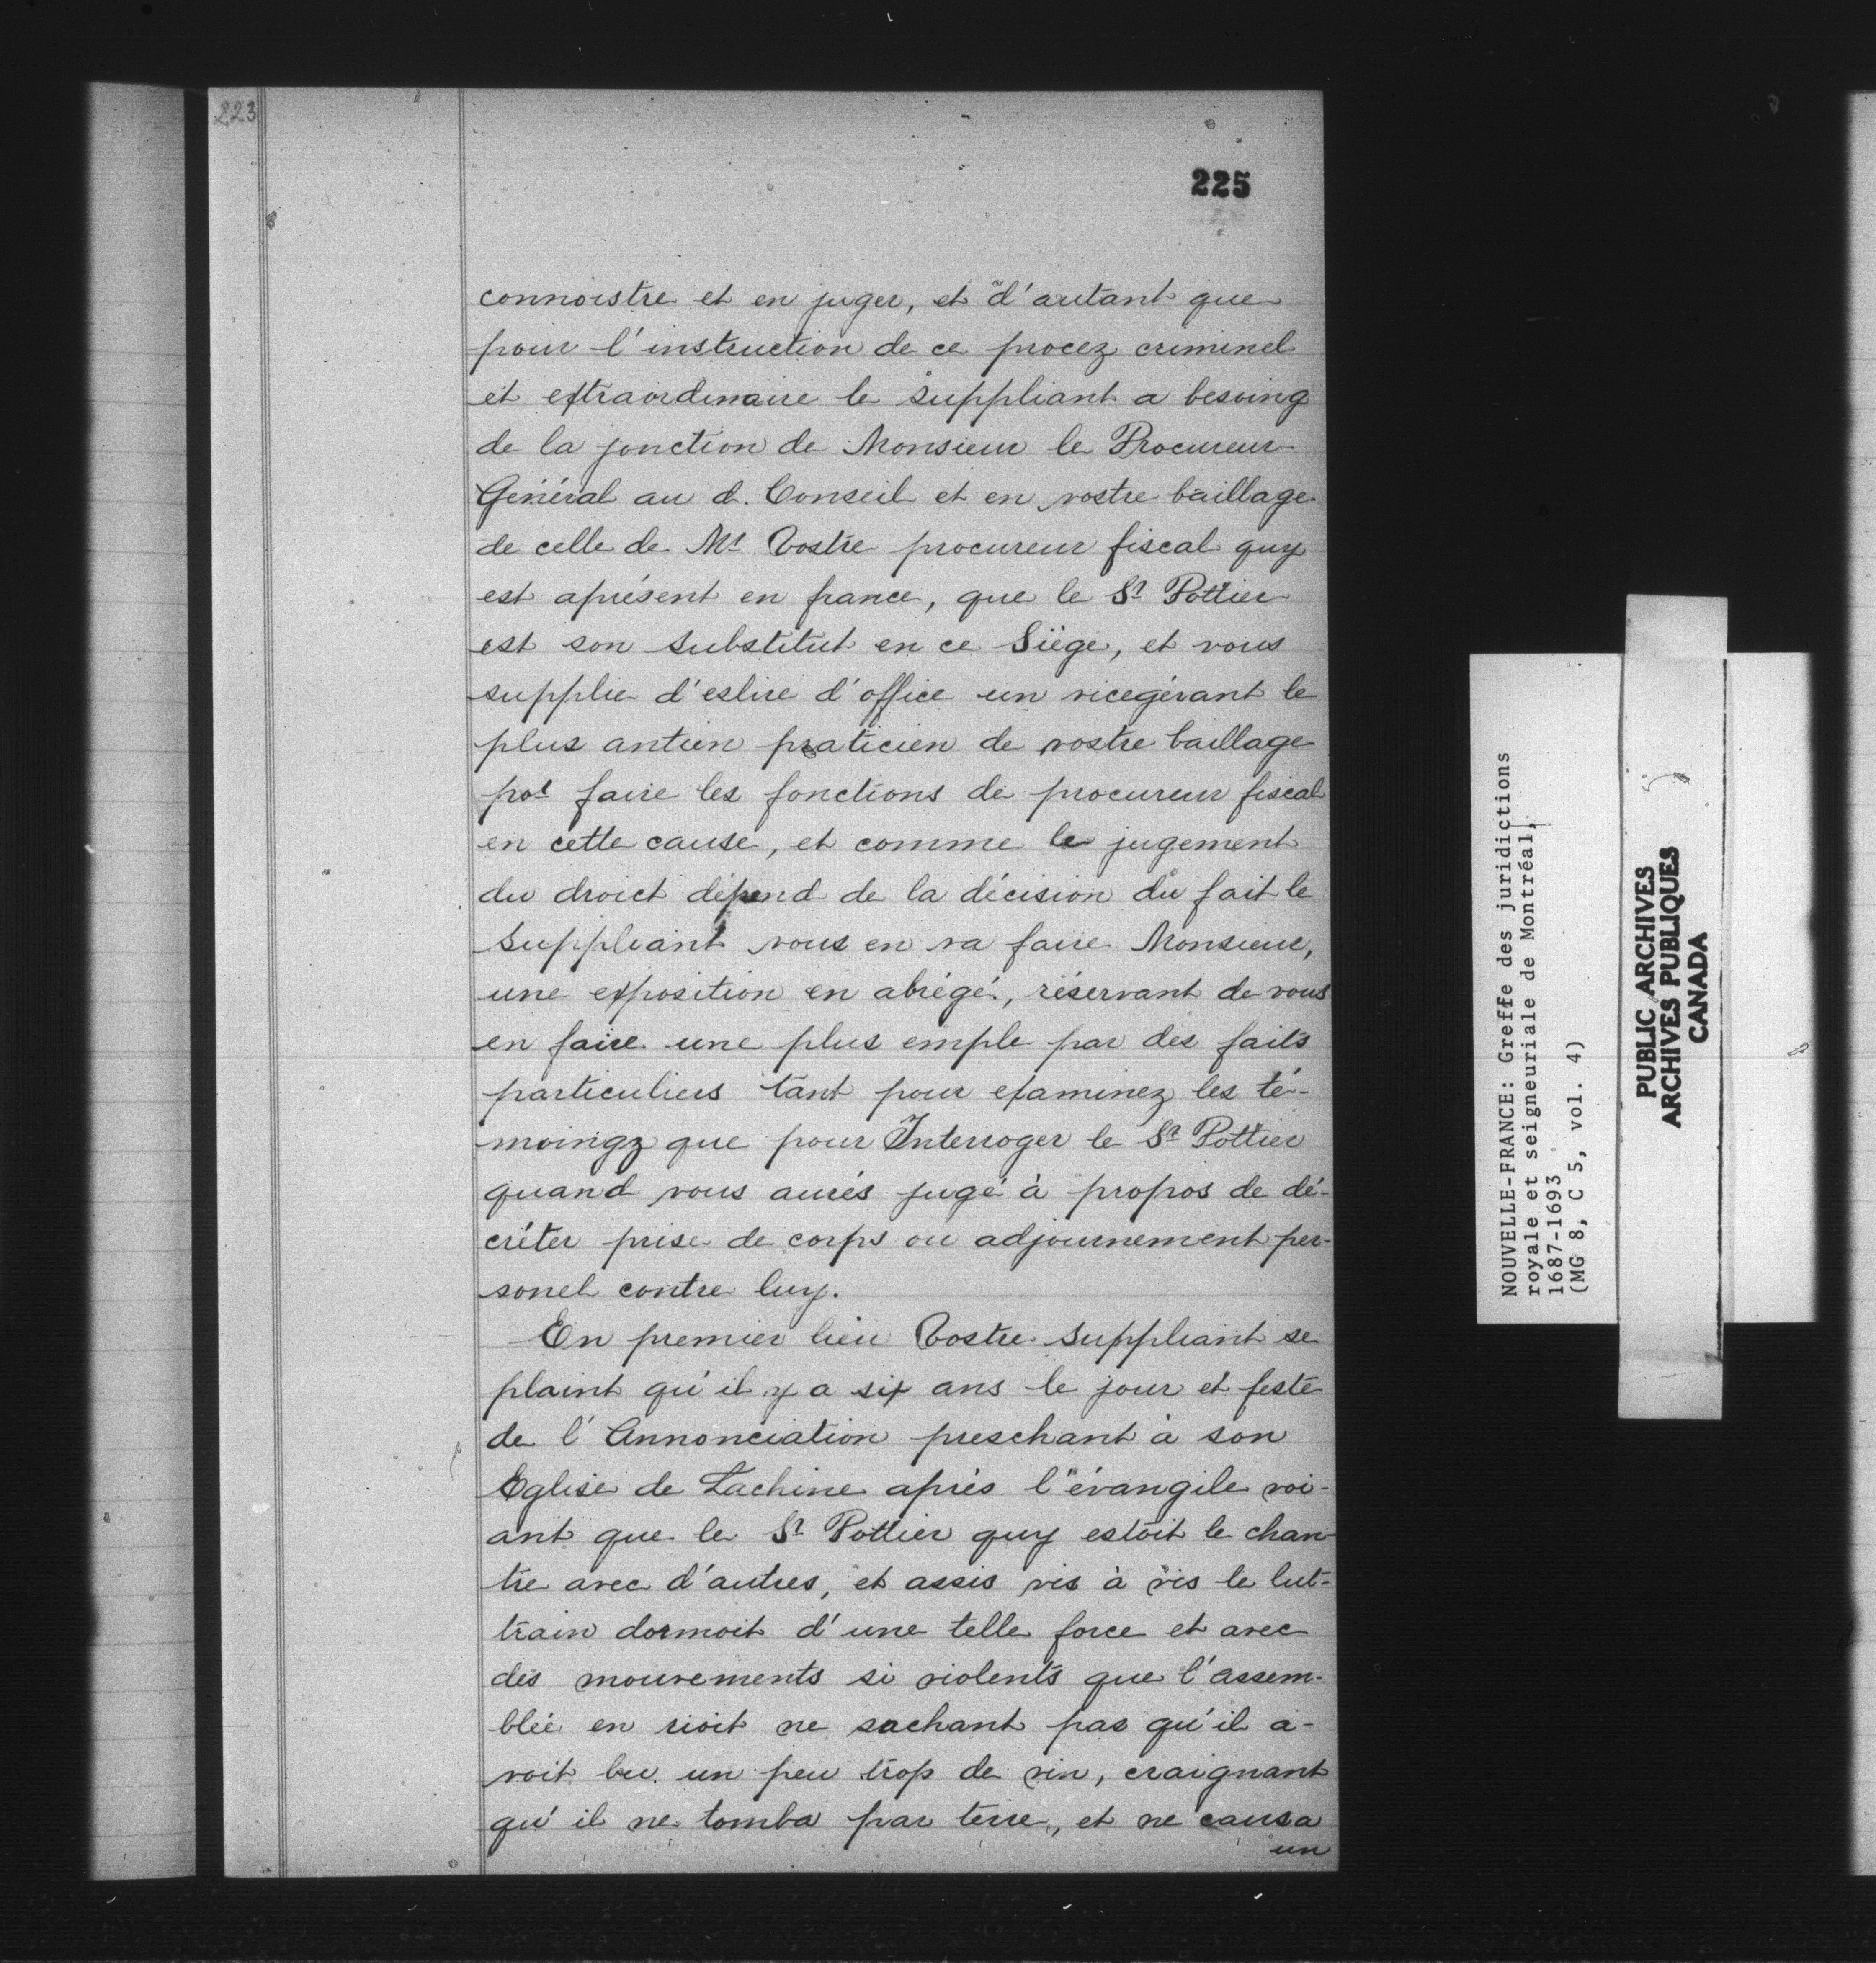 223
225
connoistre et en juger, et d'autant que
pour l'instruction de ce procez criminel
et extraordinaire le suppliant a besoing
de la jonction de Monsieur le Procureur
Général au d. Conseil et en vostre baillage
de celle de Mr Vostre procureur fiscal quy
est aprésent en france, que le Sr Pottier
est son substitut en ce Siège, et vous
supplie d'eslire d'office un vicegérant le
plus antien praticien de vostre baillage
por faire les fonctions de procureur fiscal
en cette cause, et comme le jugement
du droict dépend de la décision du fait le
suppliant vous en va faire Monsieur,
une exposition en abrégé, réservant de vous
en faire une plus emple par des faits
particuliers tant pour examinez les té-
moingz que pour Interroger le Sr Pottier
quand vous aurés jugé à propos de dé-
créter prise de corps ou adjournement per-
sonel contre luy.
En premier lieu Vostre suppliant se
plaint qu'il y a six ans le jour et feste
de l'Annonciation preschant à son
Eglise de Lachine après l'évangile voi-
ant que le Sr Pottier quy estoit le chan-
tre avec d'autres, et assis vis à vis le lut-
train dormoit d'une telle force et avec
des mouvements si violents que l'assem-
blée en rioit ne sachant pas qu'il a-
voit bu un peu trop de vin, craignant
qu'il ne tomba par terre, et ne causa
un
NOUVELLE-FRANCE: Greffe des juridictions
royale et seigneuriale de Montréal,
1687-1693
(MG 8, C 5, vol. 4)
PUBLIC ARCHIVES
ARCHIVES PUBLIQUES
CANADA